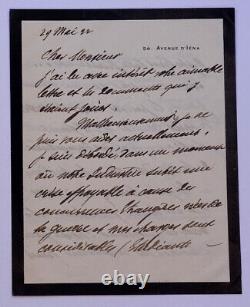 56, AVENUE D'IÉNA
29 Mai 22
Cher Monsieur
J'ai lu avec intérêt votre aimable
lettre et les documents qui y
étaient joints.
Malheureusement, je ne
puis vous aider actuellement,
je suis dans un moment
où notre Industrie subit une
crise effroyable à cause des
concurrences étrangères
la guerre et nos charges sont
considérables